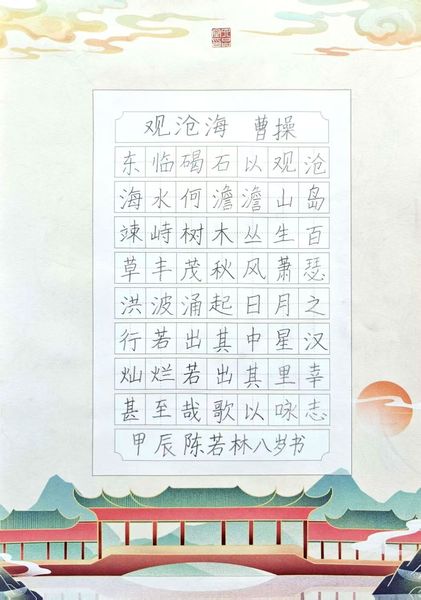 观沧海 曹操
东临碣石以观沧
海水何澹澹山岛
竦峙树木丛生百
草丰茂秋风萧瑟
洪波涌起日月之
行若出其中星汉
灿烂若出其里幸
甚至哉歌以咏志
甲辰陈若林八岁书